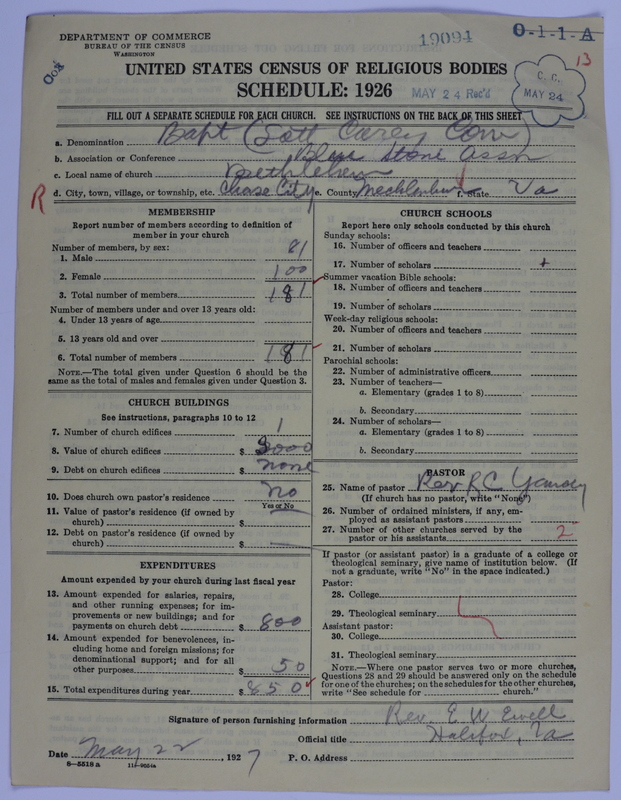 DEPARTMENT OF COMMERCE
BUREAU OF THE CENSUS
WASHINGTON
19094
0-1-1-A
13
C. C.
MAY 24
MAY 24 Rec'd
UNITED STATES CENSUS OF RELIGIOUS BODIES
SCHEDULE: 1926
FILL OUT A SEPARATE SCHEDULE FOR EACH CHURCH. SEE INSTRUCTIONS ON THE BACK OF THIS SHEET
a. Denomination Bapt (Lott Carey Con)
b. Association or Conference Blue Stone Assn
c. Local name of church Bethlehem
R
d. City, town, village, or township, etc. Chase City e. County Mecklenburg f. State Va
MEMBERSHIP
Report number of members according to definition of member in your church
Number of members, by sex:
1. Male 81
2. Female 100
3. Total number of members 181
Number of members under and over 13 years old:
4. Under 13 years of age
5. 13 years old and over
6. Total number of members 181
NOTE.—The total given under Question 6 should be the
same as the total of males and females given under Question 3.
CHURCH BUILDINGS
See instructions, paragraphs 10 to 12
7. Number of church edifices 1
8. Value of church edifices $ 3000
9. Debt on church edifices $ none
10. Does church own pastor's residence No
Yes or No
11. Value of pastor's residence (if owned by
church) $
12. Debt on pastor's residence (if owned by
church) $
EXPENDITURES
Amount expended by your church during last fiscal year
13. Amount expended for salaries, repairs,
and other running expenses; for im-
provements or new buildings; and for
payments on church debt $ 800
14. Amount expended for benevolences, in-
cluding home and foreign missions; for
denominational support; and for all
other purposes $ 50
15. Total expenditures during year $ 850
CHURCH SCHOOLS
Report here only schools conducted by this church
Sunday schools:
16. Number of officers and teachers
17. Number of scholars +
Summer vacation Bible schools:
18. Number of officers and teachers
19. Number of scholars
Week-day religious schools:
20. Number of officers and teachers
21. Number of scholars
Parochial schools:
22. Number of administrative officers
23. Number of teachers—
a. Elementary (grades 1 to 8)
b. Secondary
24. Number of scholars—
a. Elementary (grades 1 to 8)
b. Secondary
PASTOR
25. Name of pastor Rev. R C
(If church has no pastor, write "None")
26. Number of ordained ministers, if any, em-
ployed as assistant pastors
27. Number of other churches served by the
pastor or his assistants 2
If pastor (or assistant pastor) is a graduate of a college or
theological seminary, give name of institution below. (If
not a graduate, write "No" in the space indicated.)
Pastor:
28. College
29. Theological seminary
Assistant pastor:
30. College
31. Theological seminary
NOTE.—Where one pastor serves two or more churches,
Questions 28 and 29 should be answered only on the schedule
for one of the churches; on the schedules for the other churches,
write "See schedule for church."
Signature of person furnishing information Rev. E. W. Ewell
Official title Halifax, Va
Date May 22, 1927 P. O. Address
8-5518 a 11-9664a